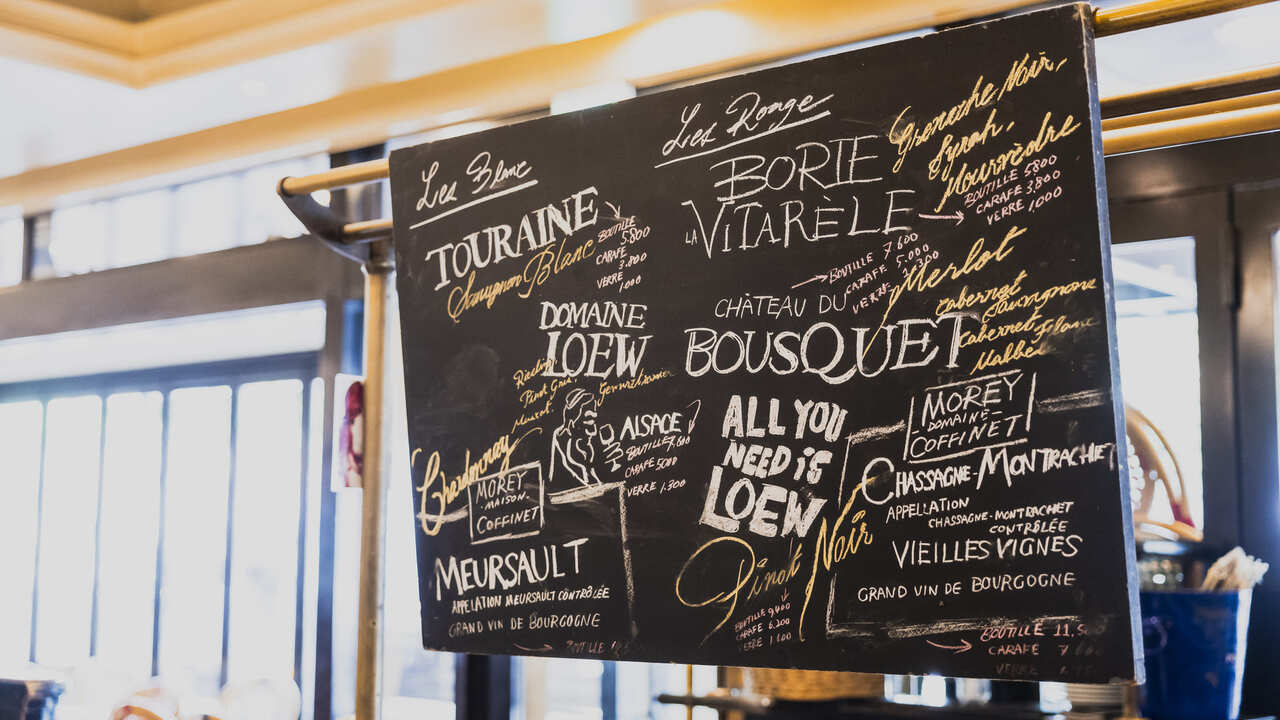 Les Blanc
TOURAINE
Sauvignon Blanc
BOUTILLE
5.800
CARAFE
3.800
VERRE
1,000
DOMAINE
LOEW
Riesling
Pinot Gris, Gewurztraminer
Muscat
ALSACE
BOUTILLE 7.600
CARAFE 5000
VERRE 1.300
Chardonnay
MOREY
-MAISON-
COFFINET
MEURSAULT
APPELLATION MEURSAULT CONTRÔLÉE
GRAND VIN DE BOURGOGNE
BOUTILLE
Les Rouge
BORIE
LA VITARÈLE
Grenache Noir,
Syrah,
Mourvèdre
BOUTILLE 5800
CARAFE 3,800
VERRE 1,000
BOUTILLE 7600
CARAFE 5.000
VERRE
Merlot
CHÂTEAU DU
BOUSQUET
Cabernet
Sauvignone
Cabernet Franc
Malbec
ALL YOU
NEED IS
LOEW
Pinot Noir
BOUTILLE 9,400
CARAFE 6.200
VERRE 1.600
MOREY
DOMAINE-
COFFINET
CHASSAGNE-MONTRACHET
APPELLATION
CHASSAGNE-MONTRACHET
CONTRÔLÉE
VIEILLES VIGNES
GRAND VIN DE BOURGOGNE
BOUTILLE
CARAFE
VERRE